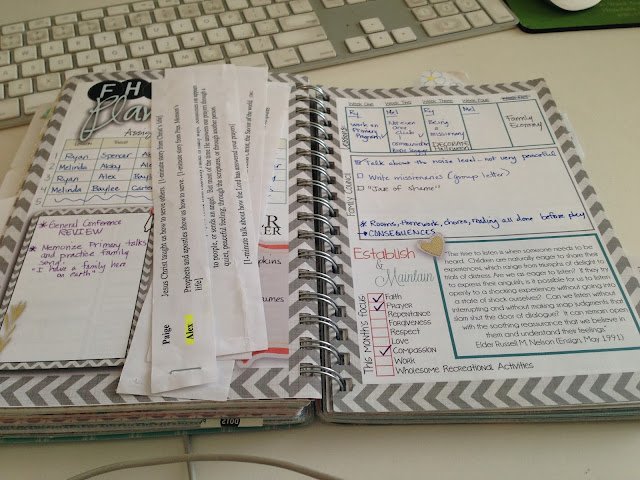 FH
Plan
Ryan Spencer Ale
Melinda Alexy
Ryan Alex Bayl
Melinda Baylee Carte
* General Conference
REVIEW
* Memorize Primary talks
and practice family
song-
"I have a family here
on earth"
Paige
Alex
Jesus Christ taught us how to serve others. [1-minute story from Christ's life]
Prophets and apostles show us how to serve. [1-minute story from Pres. Monson's
life]
to people, or sends an angel. But most of the time He answers our prayers through a
quiet, peaceful feeling, through the scriptures, or through another person.
[1-minute talk about how the Lord has answered your prayers]
2015
Week One Week Two Week Three Week Four
Lesson
Ry
Work on
Primary
Program
Mel
Ry
Being
a
missionary
Mel
Family
Economy
Family Council
* Talk about the noise level - not very peaceful
□ Write missionaries (group letter)
□ "Jar of Shame"
* Rooms, Homework, chores, Reading all done before play
* CONSEQUENCES
Establish
& Maintain
This Month's Focus
Faith
Prayer
Repentance
Forgiveness
Respect
Love
Compassion
Work
Wholesome Recreational Activities
"The time to listen is when someone needs to be
heard. Children are naturally eager to share their
experiences, which range from triumphs of delight to
trials of distress. Are we as eager to listen? If they try
to express their anguish, is it possible for us to listen
openly to a shocking experience without going into
a state of shock ourselves? Can we listen without
interrupting and without making snap judgments that
slam shut the door of dialogue? It can remain open
with the soothing reassurance that we believe in
them and understand their feelings."
Elder Russell M. Nelson (Ensign, May 1991)